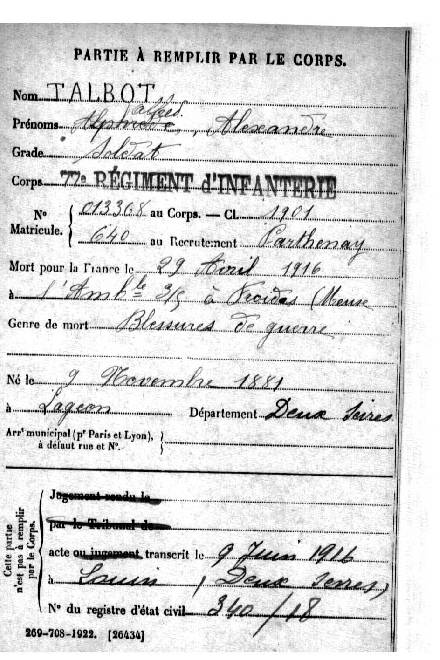 PARTIE À REMPLIR PAR LE CORPS.
Nom TALBOT
Alfred
Prénoms Alphonse, Alexandre
Grade Soldat
Corps 77e RÉGIMENT d'INFANTERIE
No Matricule. { 013368 au Corps. — Cl. 1901
640 au Recrutement Parthenay
Mort pour la France le 29 Avril 1916
à l'Ambce 3/5 à Froidos (Meuse
Genre de mort Blessures de guerre
Né le 9 Novembre 1881
à Lageon Département Deux Sèvres
Arrt municipal (pr Paris et Lyon), à défaut rue et No. }
Cette partie n'est pas à remplir par le Corps.
Jugement rendu le
par le Tribunal de
acte ou jugement transcrit le 9 Juin 1916
à Louin (Deux Sevres)
No du registre d'état civil 340/18
269-708-1922. [26434]